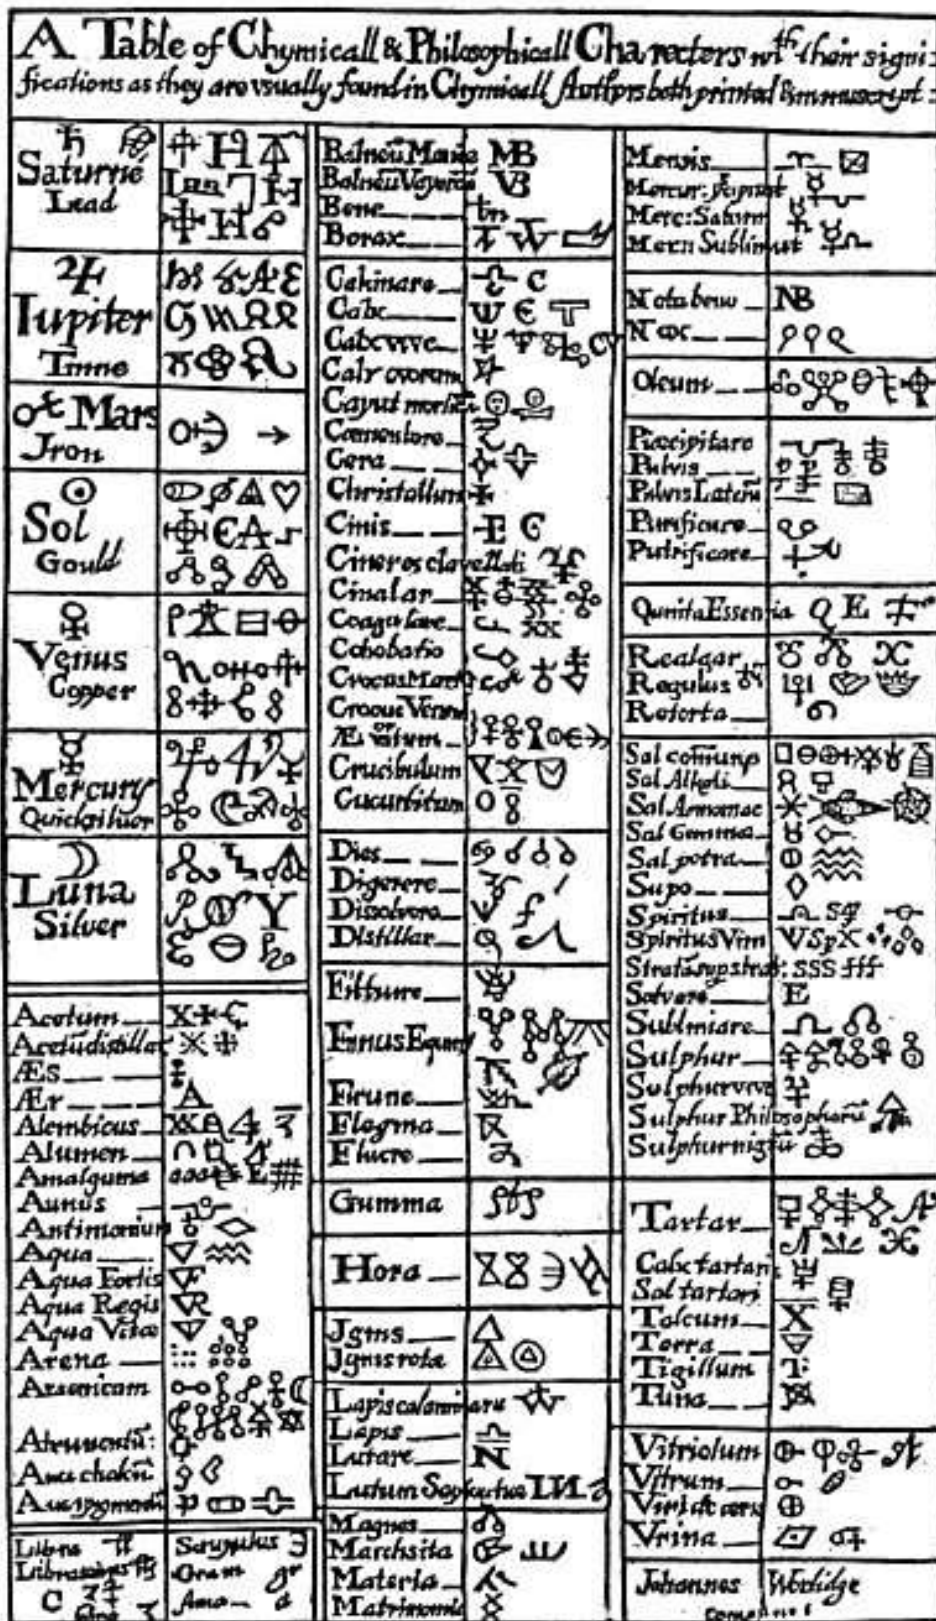 A Table of Chymicall & Philosophicall Charecters wth their signi:
fications as they are vsually found in Chymicall Authors both printed & manuscript:
Saturne
Lead
Iupiter
Tinne
Mars
Iron
Sol
Gould
Venus
Copper
Mercury
Quicksiluer
Luna
Silver
Acetum
Acetū distillat
Æs
Ær
Alembicus
Alumen
Amalguma
Antimonium
Aqua
Aqua Fortis
Aqua Regis
Aqua Vitae
Arena
Arsenicum
Libra
C
Scrupulus
Gram
Balneū Mariae MB
VB
Bene
Borax
Calcinare C
Calx
Calx vive
Calx ovorum
Caput mortuū
Cera
Christallum
Cinis
Cineres clavellati
Coagulare
Cohobatio
Crocus Martis
Crucibulum
Cucurbitum
Dies
Digerere
Dissolvere
Distillar
Filtrare
Fimus Equinus
Flegma
Gumma
Hora
Ignis
Ignis rotae
Lapis calaminaris
Lapis
Lutare
Magnes
Marchsita
Materia
Matrimonia
Mensis
Merc: Saturn
Merc: Sublimat
Nota bene NB
Nox
Oleum
Praecipitare
Pulvis
Pulvis Laterū
Purificare
Putrificare
Quinta Essentia Q E
Realgar
Regulus
Retorta
Sal comūne
Sal Alkali
Sal Armoniac
Sal Gemma
Sal petra
Sapo
Spiritus
Spiritus Vini
SSS fff
Solvere E
Sublimare
Sulphur
Sulphur vive
Sulphur Philosophorū
Sulphur nigrū
Tartar
Calx tartari
Sal tartari
Talcum
Terra
Tigillum
Vitriolum
Vitrum
Vrina
Johannes Worlidge